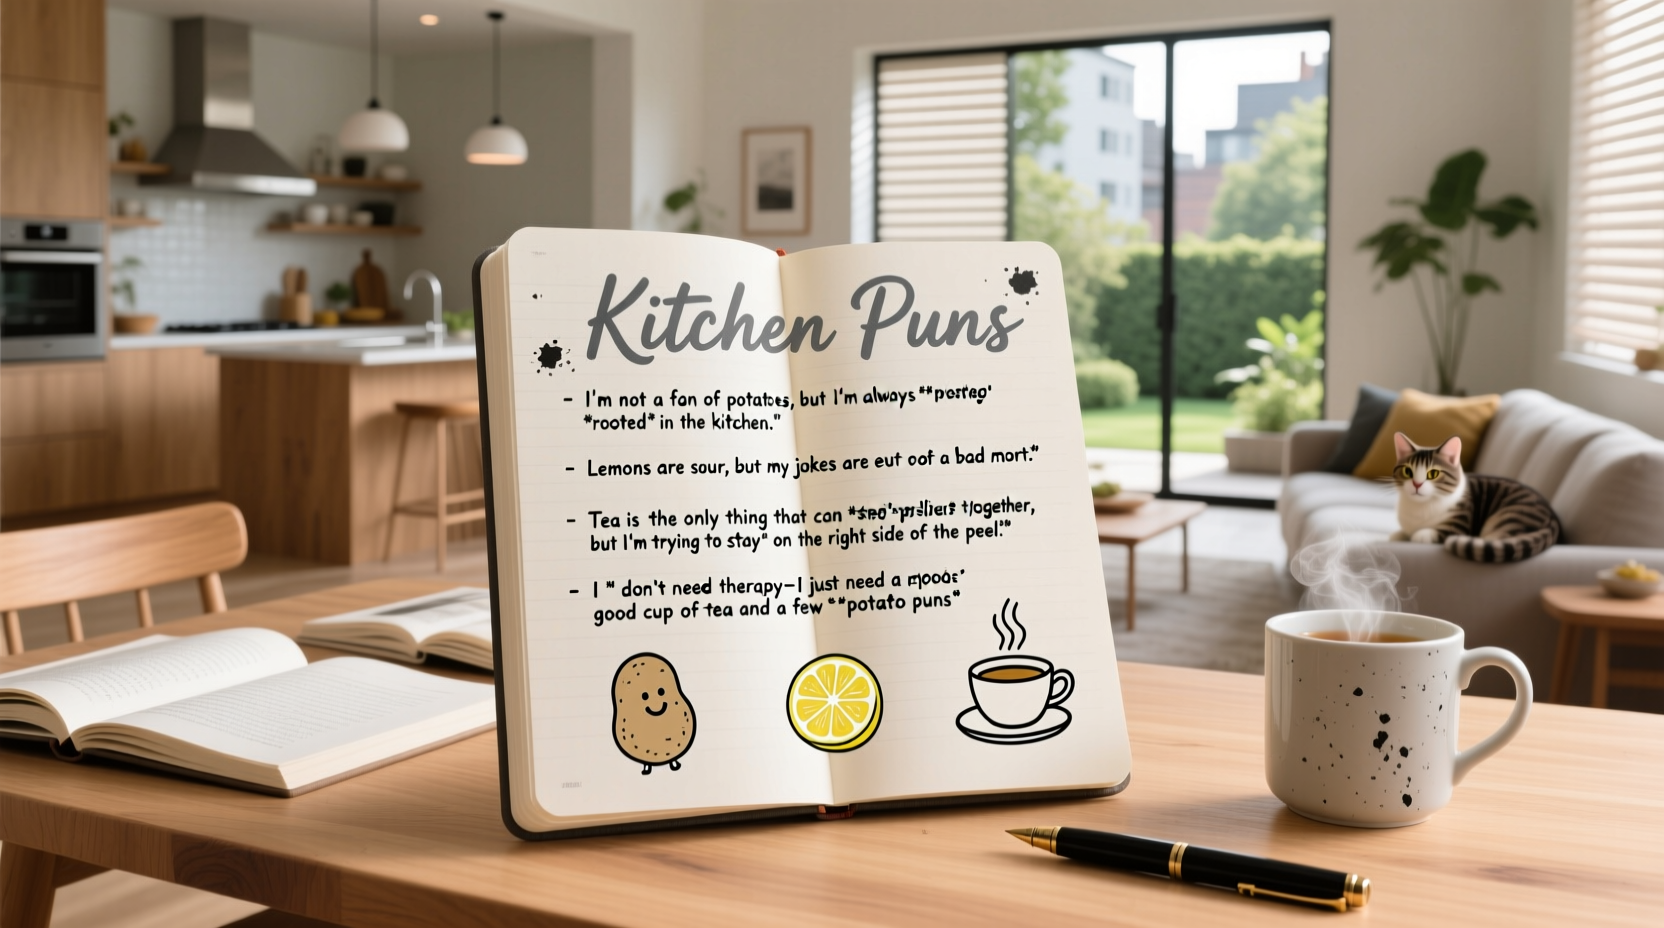 Kitchen Puns
- I'm not a fan of potatoes, but I'm always
*rooted* in the kitchen."
- Lemons are sour, but my jokes are eut oof a bad mort."
- Tea is the only thing that can together,
but I'm trying to stay" on the right side of the peel."
- I " don't need therapy-I just need a
good cup of tea and a few "*potato puns"